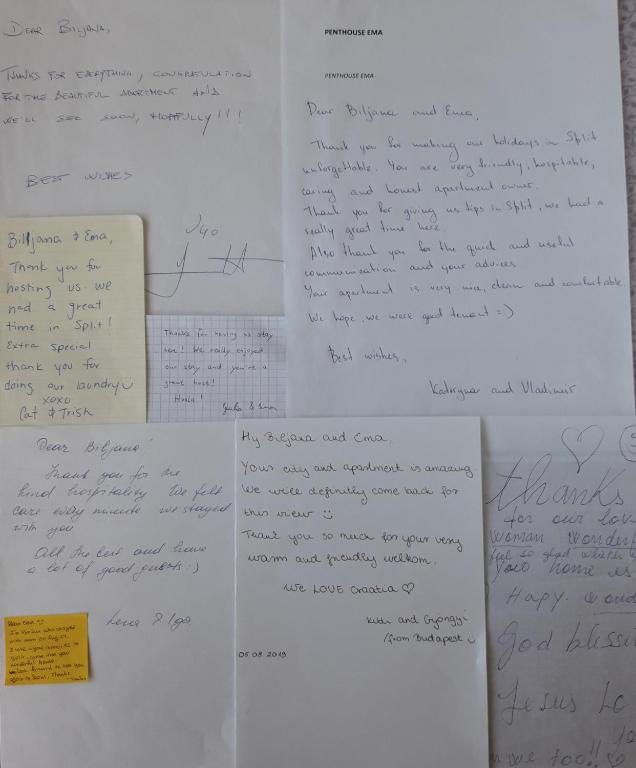 DEAR BILJANA,
THANKS FOR EVERYTHING, CONGRATULATION
FOR THE BEAUTIFUL APARTMENT AND
WE'LL SEE SOON, HOPFULLY!!!
BEST WISHES
PENTHOUSE EMA
PENTHOUSE EMA
Dear Biljana and Ema,
Thank you for making our holidays in Split
unforgettable. You are very friendly, hospitable,
caring and honest apartment owner.
Thank you for giving us tips in Split, we had a
really great time here.
Also thank you for the quick and useful
communication and your advices
Your apartment is very nice, clean and comfortable
We hope, we were good tenant =)
Best wishes,
Kateryna and Vladimir
Billjana & Ema,
Thank you for
hosting us. We
had a great
time in Split!
Extra special
thank you for
doing our laundry
xoxo
Cat & Trish
Thanks for having us stay
here! We really enjoyed
our stay and you're a
great host!
Hvala!
Dear Biljana!
Thank you for the
kind hospitality We felt
care every minute we stayed
with you
All the best and have
a lot of good guests:)
Lena & Igo
Hy Biljana and Ema,
Your city and apartment is amazing
We will definitly come back for
this view
Thank you so much for your very
warm and friendly welkom.
We LOVE Croatia
and Gyöngyi
/from Budapest
05.08.2019
thanks
for our lov
woman wonderf
home is
Hapy.
God blessi
Jesus Lo
we too!!